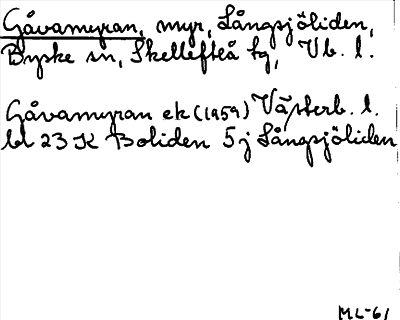 Gåvamyran, myr, Långsjöliden,
Byske sn, Skellefteå tg, Vb. l.
Gåvamyran ek (1959) Västerb. l.
bl 23 K Boliden 5 j Långsjöliden
ML-61